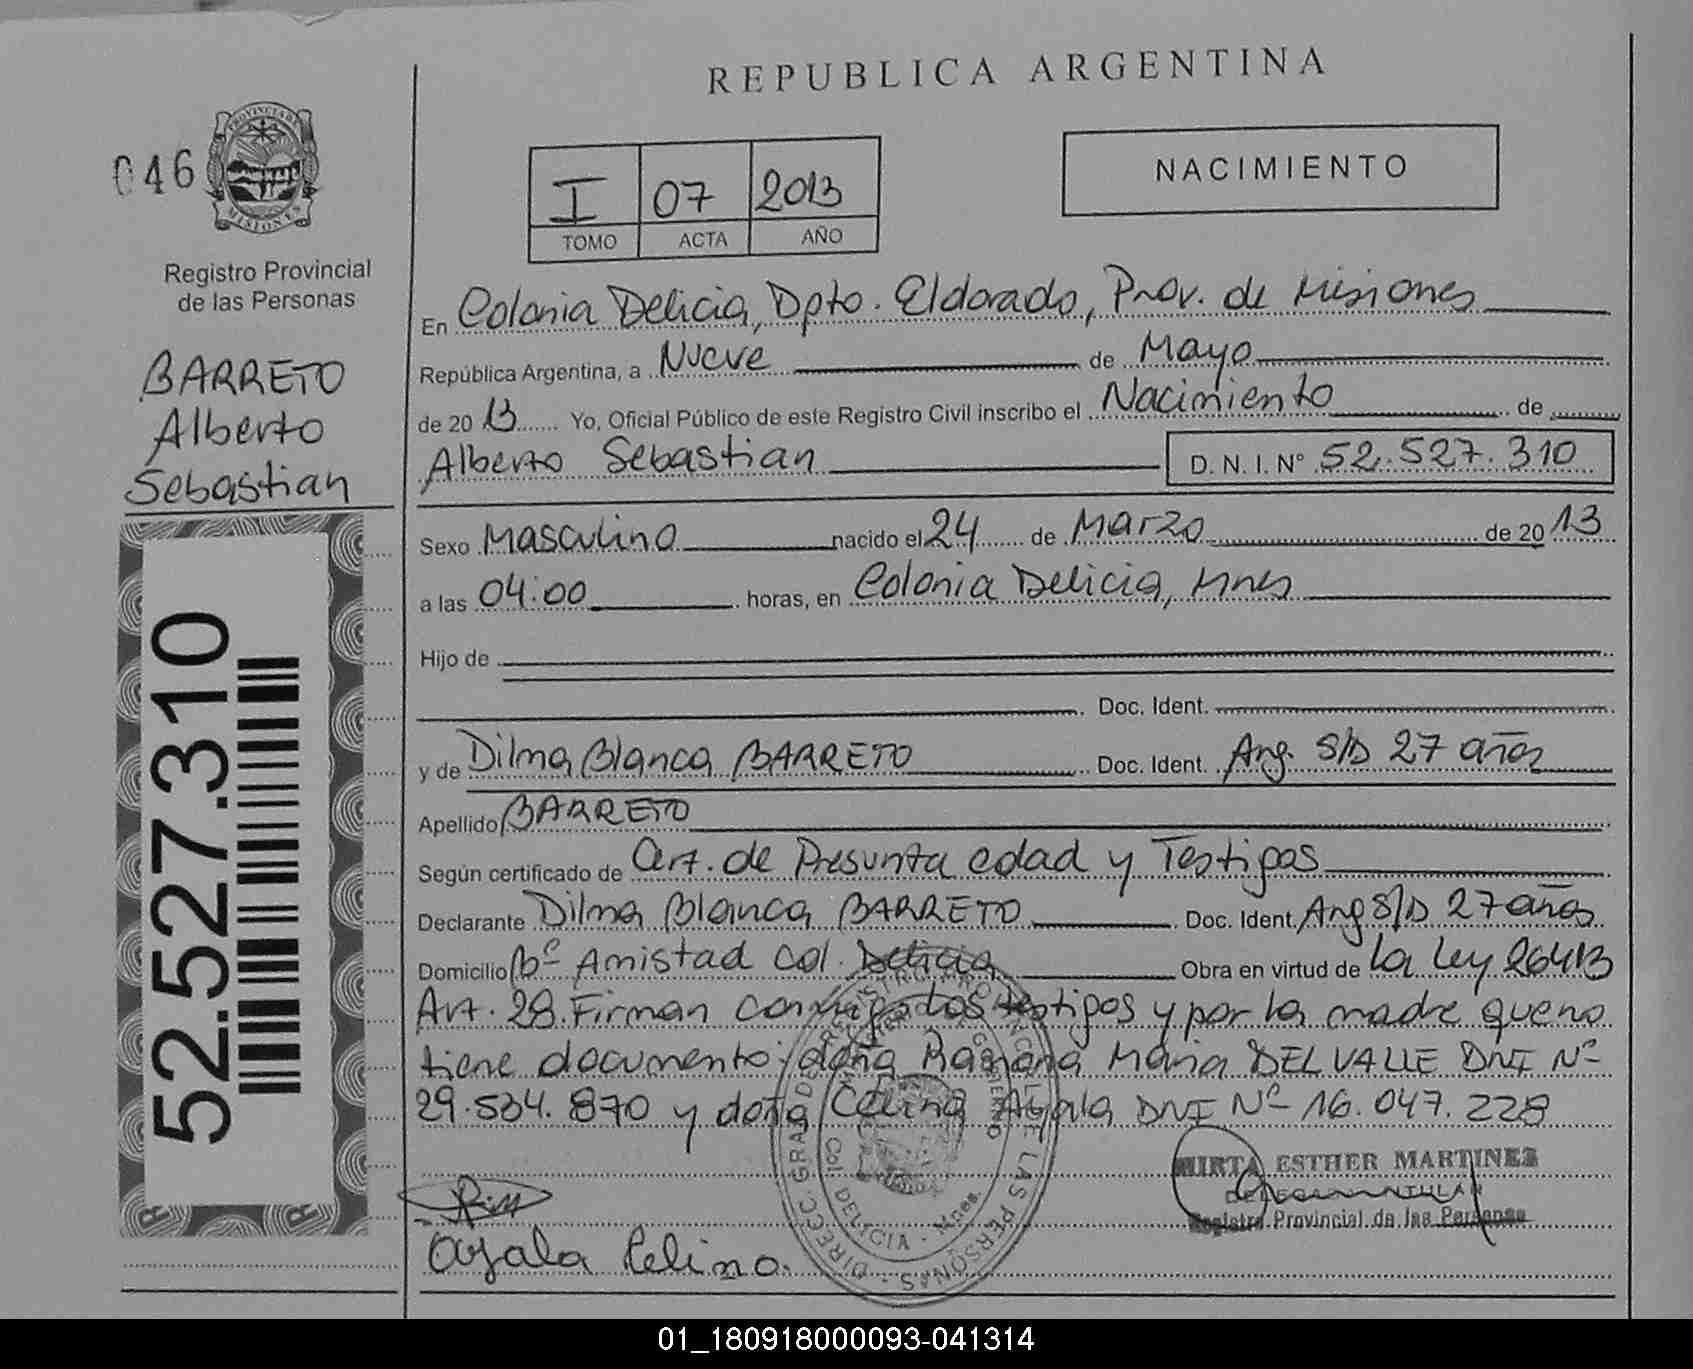 REPUBLICA ARGENTINA
046
PROVINCIA DE
MISIONES
Registro Provincial
de las Personas
I 07 2013
TOMO ACTA AÑO
NACIMIENTO
BARRETO
Alberto
Sebastian
52.527.310
En Colonia Delicia, Dpto. Eldorado, Prov. de Misiones
República Argentina, a Nueve de Mayo
de 2013 Yo, Oficial Público de este Registro Civil inscribo el Nacimiento de
Alberto Sebastian D. N. I. N° 52.527.310
Sexo Masculino nacido el 24 de Marzo de 2013
a las 04:00 horas, en Colonia Delicia, Mnes
Hijo de
Doc. Ident.
y de Dilma Blanca BARRETO Doc. Ident. Arg. S/D 27 años
Apellido BARRETO
Según certificado de Cert. de Presunta edad y Testigos
Declarante Dilma Blanca BARRETO Doc. Ident. Arg S/D 27 años
Domicilio Bº Amistad Col. Delicia Obra en virtud de la Ley 26413
Art. 28. Firman conmigo los testigos y por la madre que no
tiene documento; doña Ramona Maria DEL VALLE DNI Nº
29.534.870 y doña Celina Ayala DNI Nº 16.047.228
MIRTA ESTHER MARTINEZ
Registro Provincial de las Personas
Ayala Celina.
DIRECC. GRAL DE REGISTRO PROVINCIAL DE LAS PERSONAS
Col. DELICIA - Mnes.
01_180918000093-041314